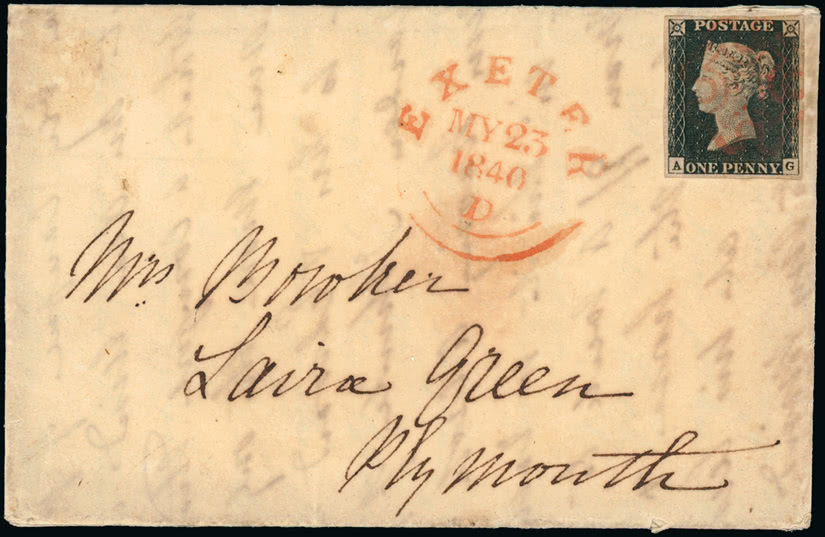 POSTAGE
A ONE PENNY G
EXETER
MY 23
1840
D
Mrs Bowker
Laira Green
Plymouth